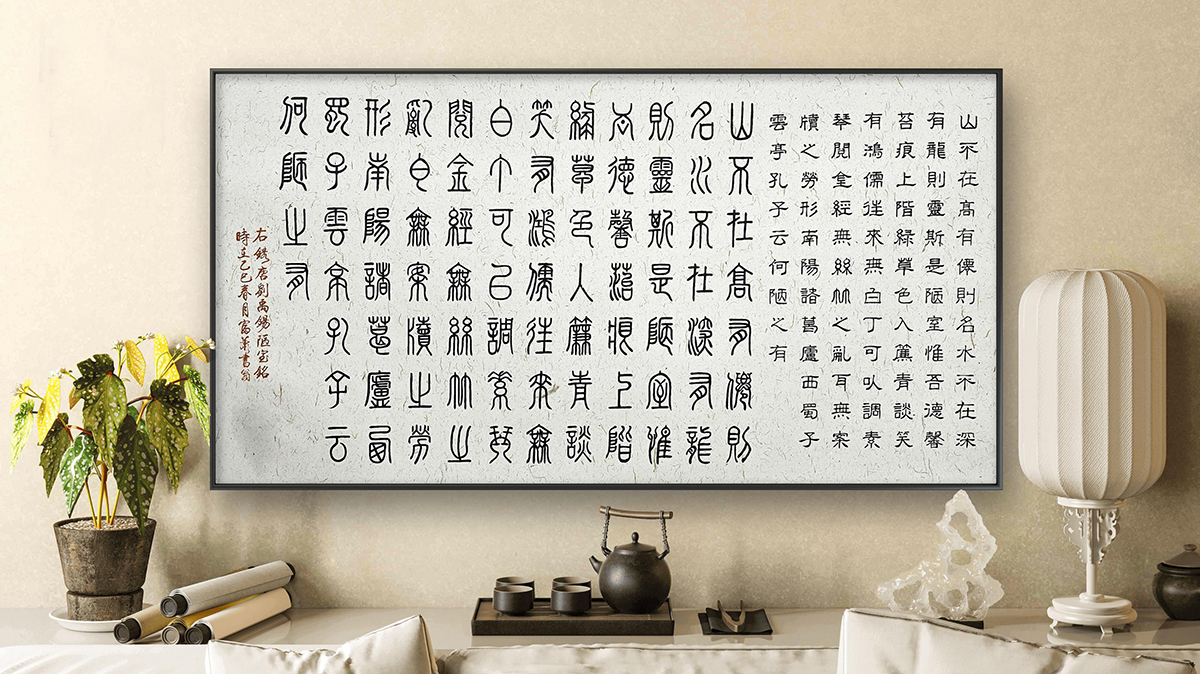 山不在高有僊則名水不在深
有龍則靈斯是陋室惟吾德馨
苔痕上階綠草色入簾青談笑
有鴻儒往來無白丁可以調素
琴閱金經無絲竹之亂耳無案
牘之勞形南陽諸葛廬西蜀子
雲亭孔子云何陋之有
山不在高有僊則
名水不在深有龍
則靈斯是陋室惟
吾德馨苔痕上階
綠草色入簾青談
笑有鴻儒往來無
白丁可以調素琴
閱金經無絲竹之
亂耳無案牘之勞
形南陽諸葛廬西
蜀子雲亭孔子云
何陋之有
右錄唐劉禹錫陋室銘
時在乙巳春月富華書